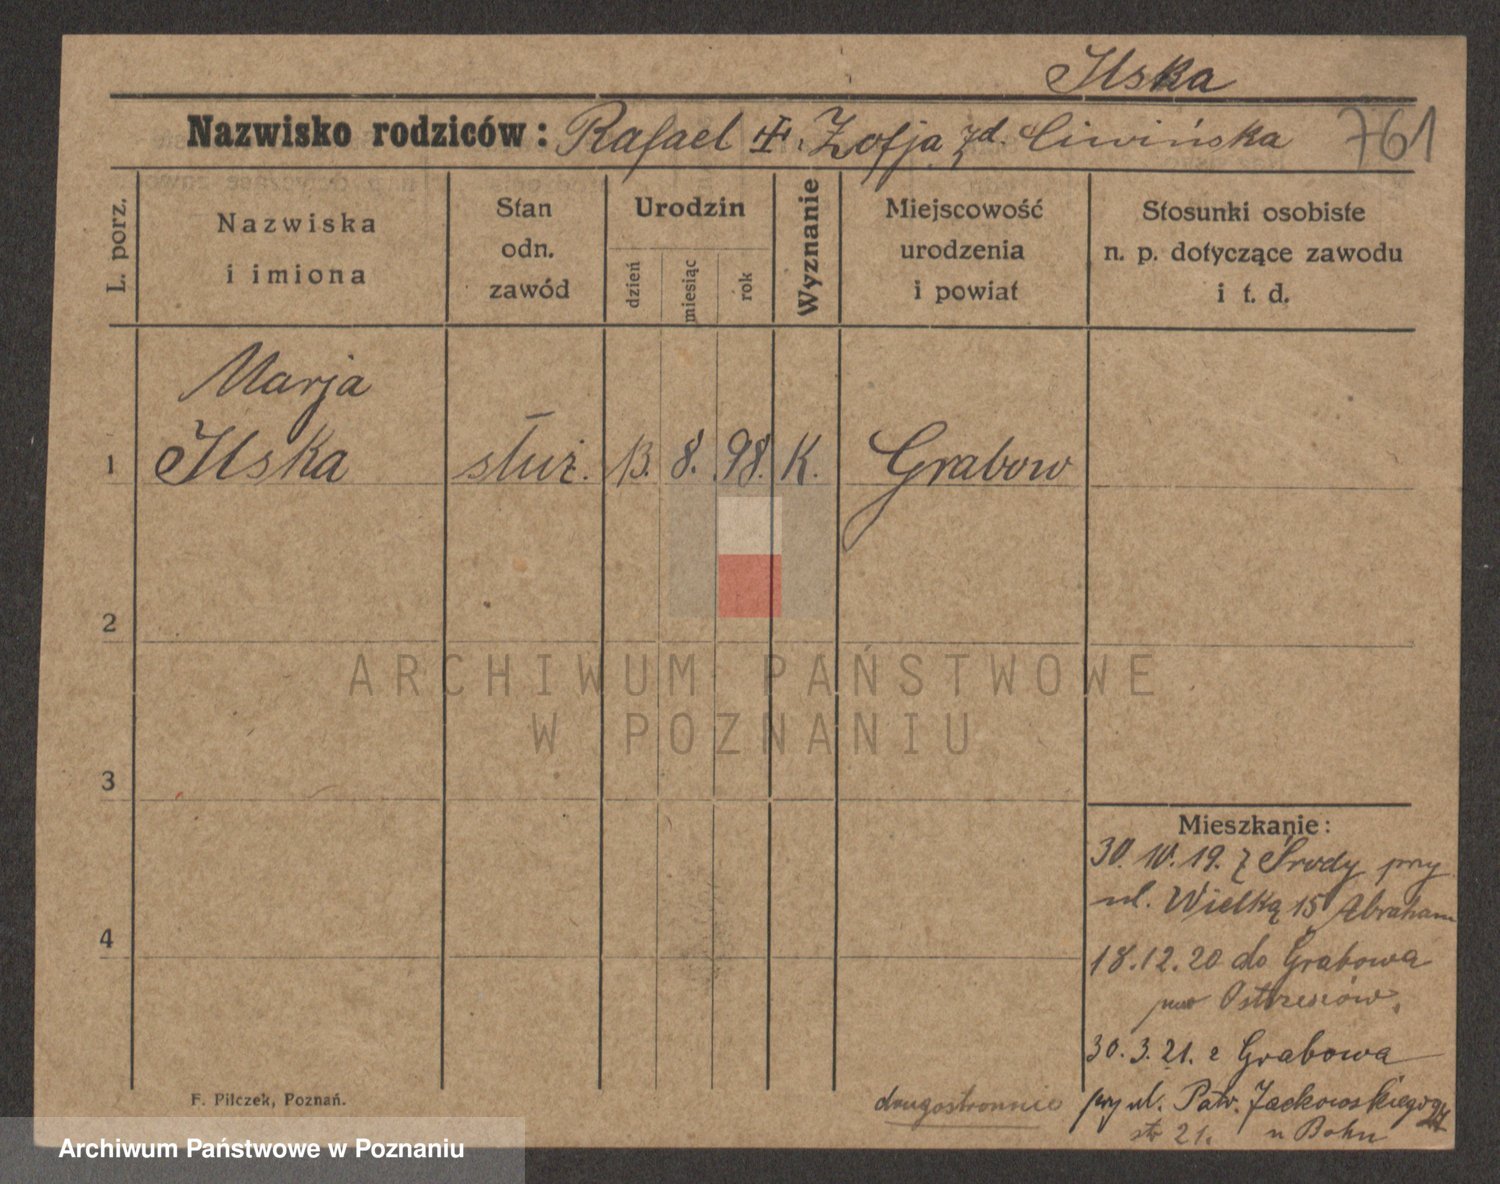 Ilska
Nazwisko rodziców: Rafael Zofja zd. Ciwińska 761
L. porz.
Nazwiska
i imiona
Stan
odn.
zawód
Urodzin
dzień
miesiąc
rok
Wyznanie
Miejscowość
urodzenia
i powiat
Stosunki osobiste
n. p. dotyczące zawodu
i t. d.
Marja
1 Ilska służ. 13. 8. 98. K. Grabow
2
3
4
ARCHIWUM PAŃSTWOWE
W POZNANIU
Mieszkanie:
30. 10. 19. z Środy przy
ul. Wielką 15 Abraham
18.12.20 do Grabowa
pow Ostrzeszów.
30. 3. 21. z Grabowa
przy ul. Patr. Jackowskiego 27
str 21. u Bohn
drugostronnie
F. Pilczek, Poznań.
Archiwum Państwowe w Poznaniu